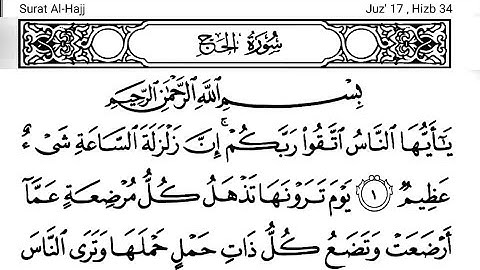 Surat Al-Hajj
Juz' 17 , Hizb 34
سُورَةُ الحَجِّ
بِسْمِ ٱللَّهِ ٱلرَّحْمَٰنِ ٱلرَّحِيمِ
يَٰٓأَيُّهَا ٱلنَّاسُ ٱتَّقُوا۟ رَبَّكُمْ ۚ إِنَّ زَلْزَلَةَ ٱلسَّاعَةِ شَىْءٌ
عَظِيمٌ ١ يَوْمَ تَرَوْنَهَا تَذْهَلُ كُلُّ مُرْضِعَةٍ عَمَّآ
أَرْضَعَتْ وَتَضَعُ كُلُّ ذَاتِ حَمْلٍ حَمْلَهَا وَتَرَى ٱلنَّاسَ